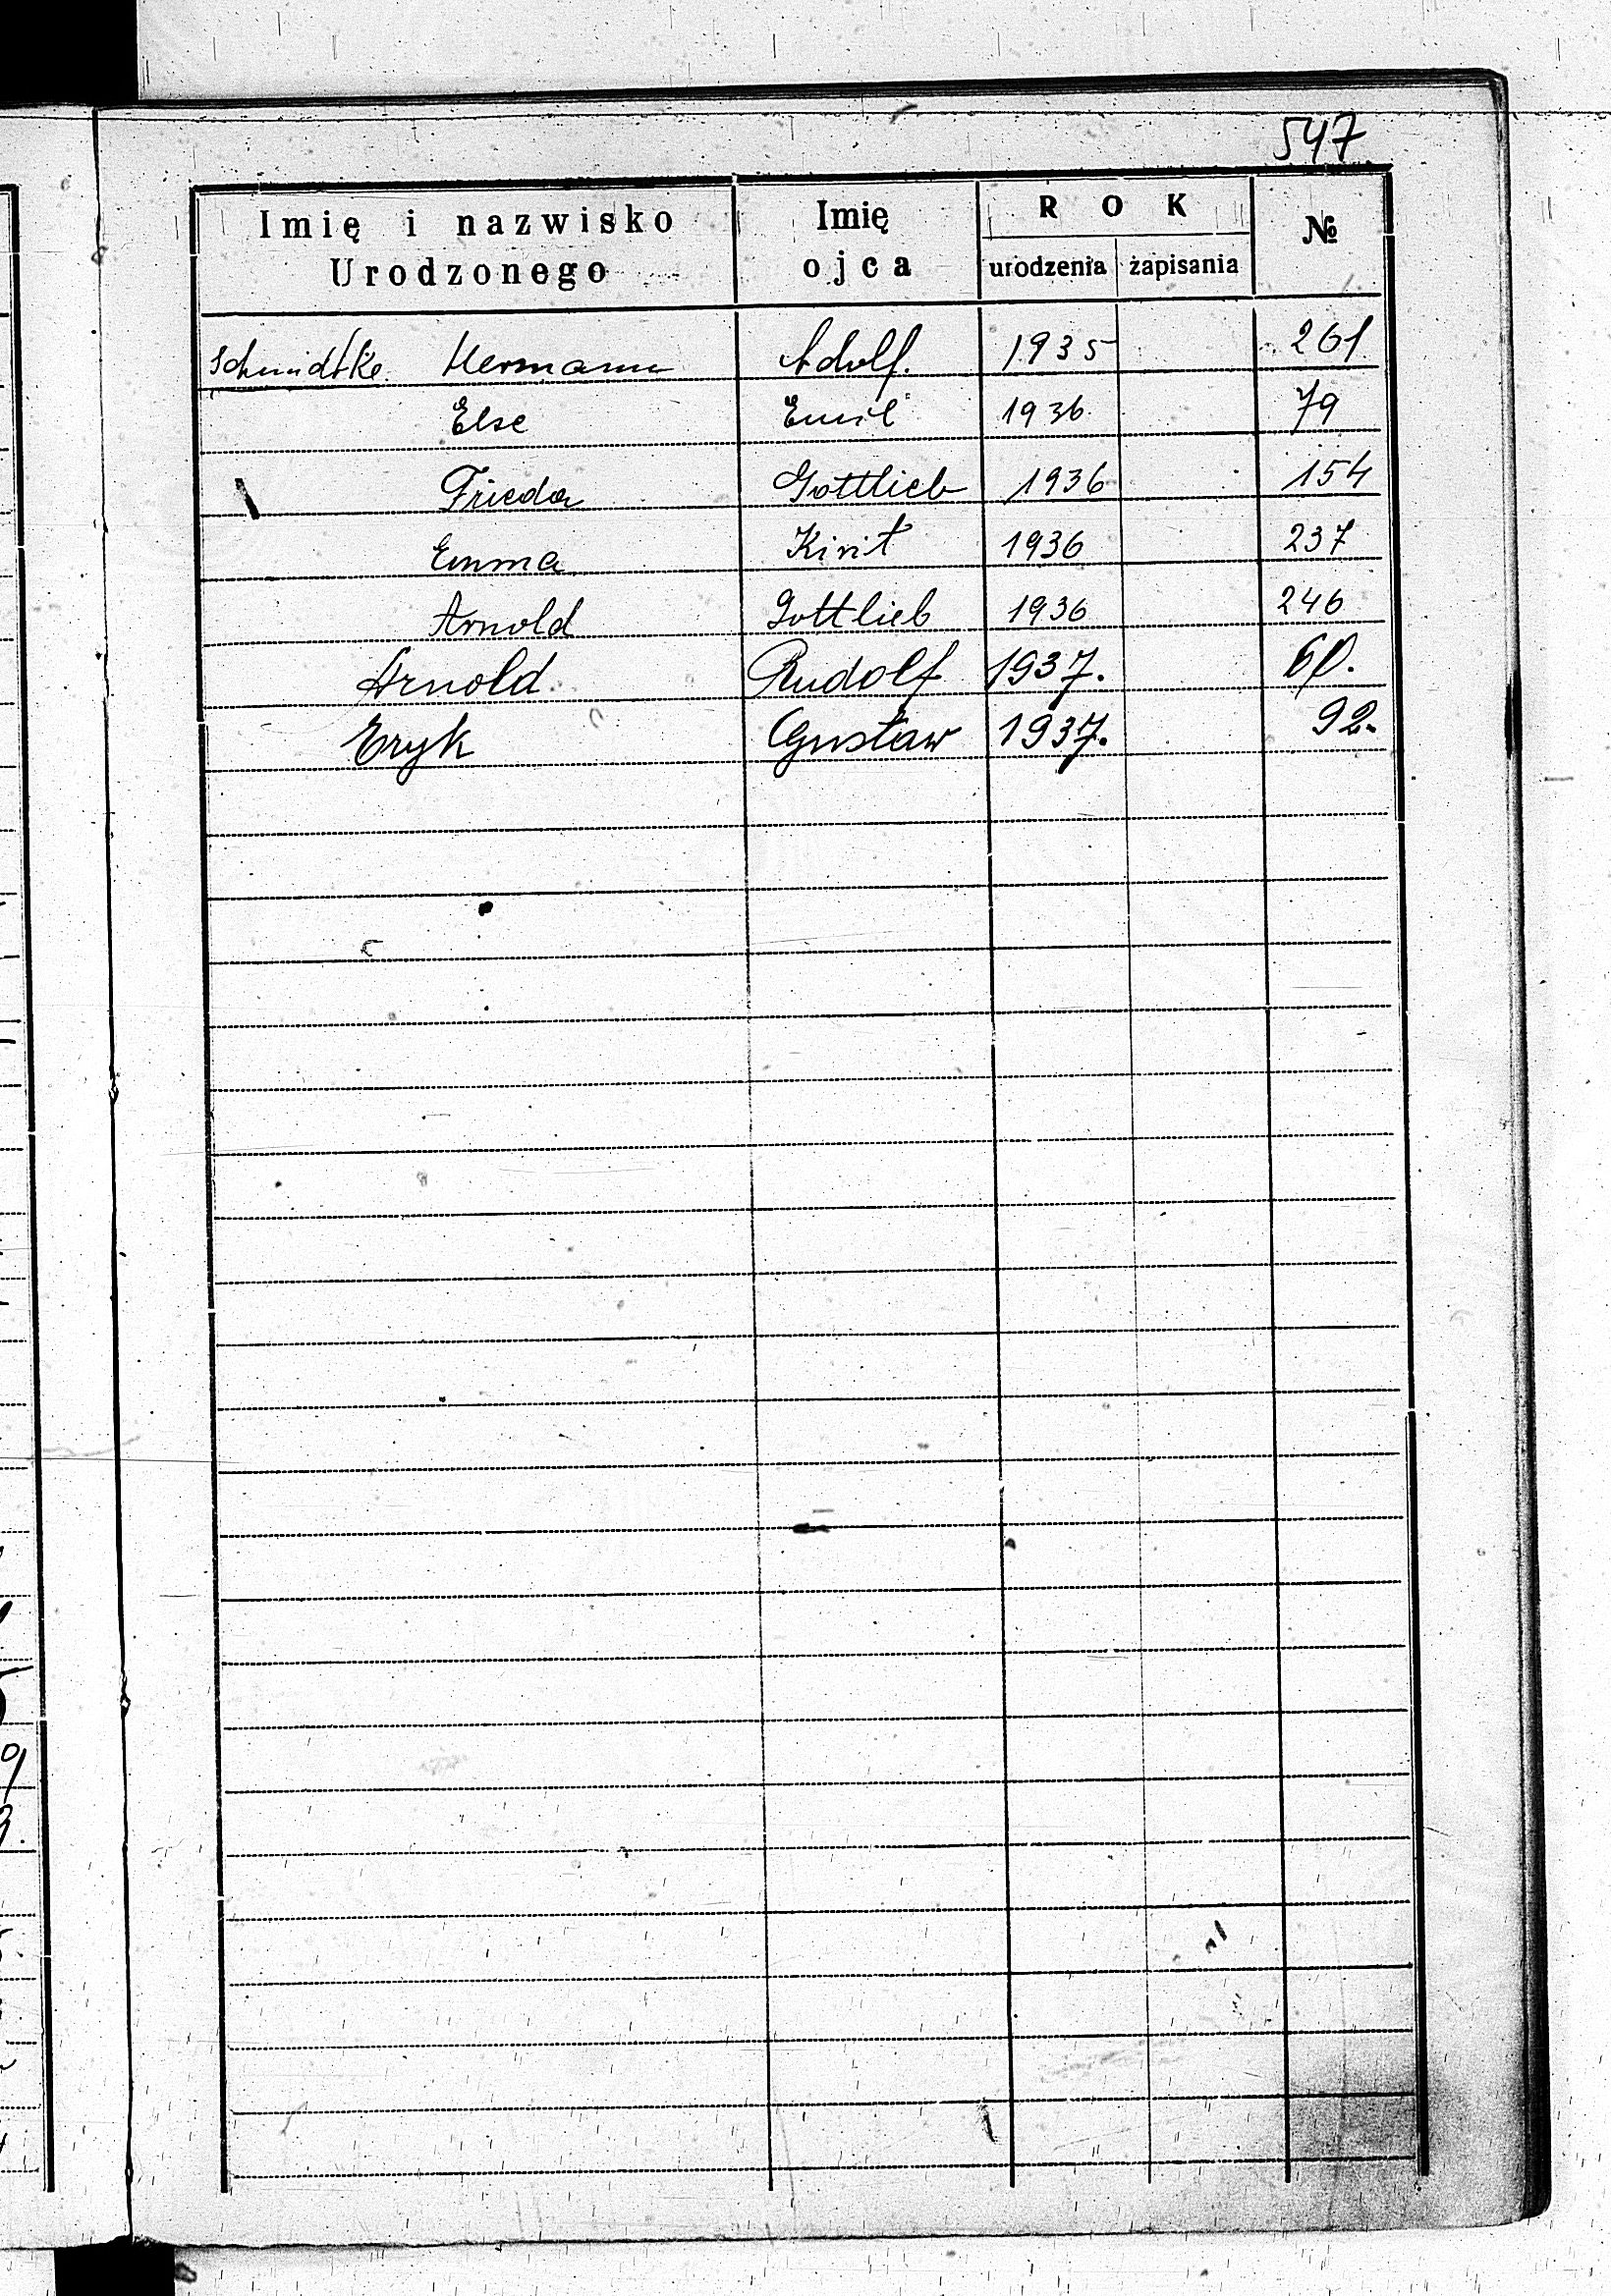 547
Imię i nazwisko Urodzonego Imię ojca ROK urodzenia zapisania №
Schmidtke Hermann Adolf. 1935 261
Else Emil 1936 79
Frieda Gottlieb 1936 154
Emma 1936 237
Arnold Gottlieb 1936 246
Arnold Rudolf 1937.
Eryk Gustaw 1937. 92.